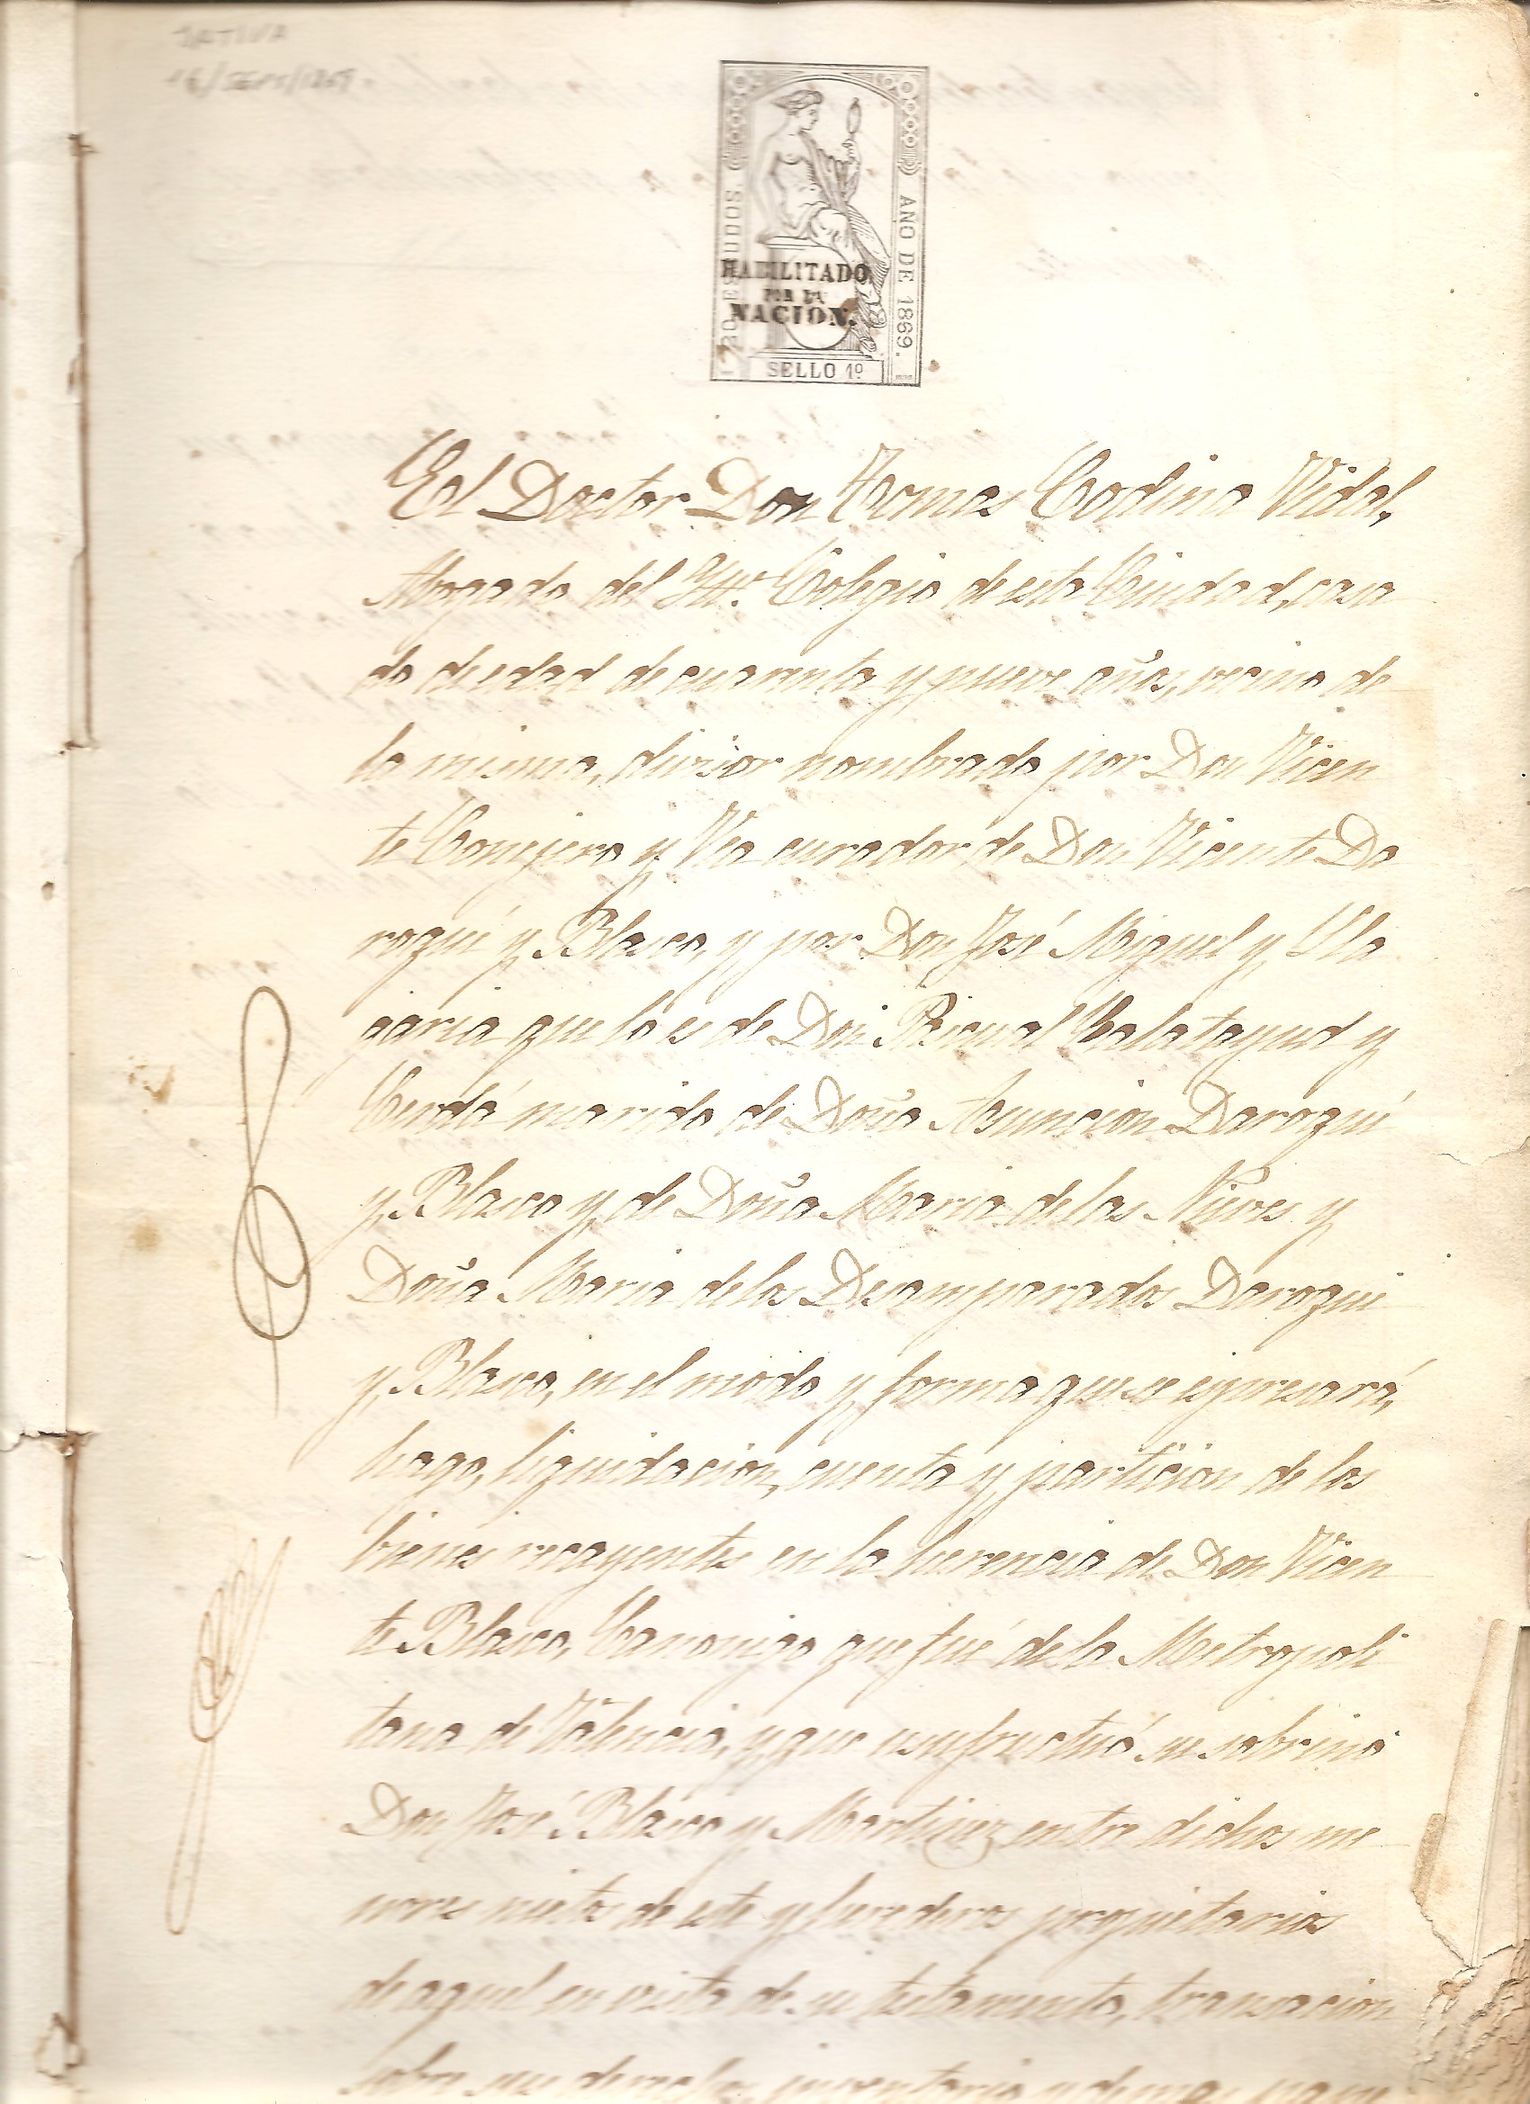 JATIVA
16/SEPT/1869
120 ESCUDOS.
AÑO DE 1869.
HABILITADO
POR LA
NACION.
SELLO 1º
El Doctor Don Tomas Codina Vidal,
Abogado del Ilte. Colegio de esta Ciudad, casa
do de edad de cuarenta y nueve años, vecino de
la misma, divisor nombrado por Don Vicen
te Conejero y Vea curador de Don Vicente Da
roqui y Blasco, y por Don José Miguel y Lla
caria que lo es de Don Pascual Calatayud y
Cerdá marido de Doña Asuncion Daroqui
y Blasco y de Doña Maria de las Nieves y
Doña Maria de los Desamparados Daroqui
y Blasco, en el modo y forma que se espresará,
hago, liquidacion, cuenta y particion de los
bienes recayentes en la herencia de Don Vicen
te Blasco, Canonigo que fué de la Metropoli
tana de Valencia, y que usufructuó su sobrino
Don José Blasco y Martinez entre dichos me
nores nietos de este y herederos propietarios
de aquel en vista de su testamento, transacion
sobre sus derechos, inventario y demas